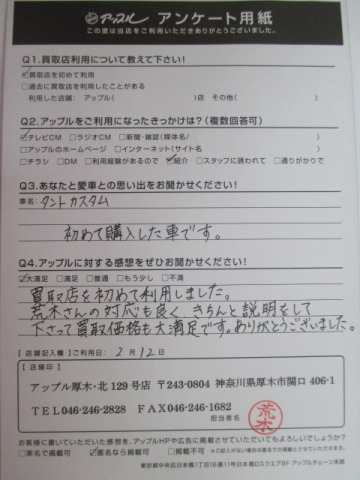 アップル アンケート用紙
この度は当店をご利用いただきありがとうございました。
Q1.買取店利用について教えて下さい!
☑買取店を初めて利用
□過去に買取店を利用したことがある
利用した店舗: アップル( )店 その他( )
Q2.アップルをご利用になったきっかけは?(複数回答可)
☑テレビCM □ラジオCM □新聞・雑誌(媒体名/ )
□アップルのホームページ □インターネット(サイト名 )
□チラシ □DM □利用経験があるので ☑紹介 □スタッフに誘われて □通りがかりで
Q3.あなたと愛車との思い出をお聞かせください!
車名: タントカスタム
初めて購入した車です。
Q4.アップルに対する感想をぜひお聞かせください!
☑大満足 □満足 □普通 □もう少し □不満
買取店を初めて利用しました。
荒木さんの対応も良く、きちんと説明をして
下さって買取価格も大満足です。ありがとうございました。
【店舗記入欄】ご利用日: 2月12日
【店舗印】
アップル厚木・北129号店 〒243-0804 神奈川県厚木市関口 406-1
TEL046-246-2828 FAX046-246-1682
担当者名 荒木
お客様に書いていただいた感想を、アップルHPや広告に掲載させていただいてもよろしいでしょうか?
□実名で掲載可 ☑匿名なら掲載可 □掲載不可
東京都中央区日本橋1丁目16番11号日本橋Dスクエア9F アップルチェーン本部